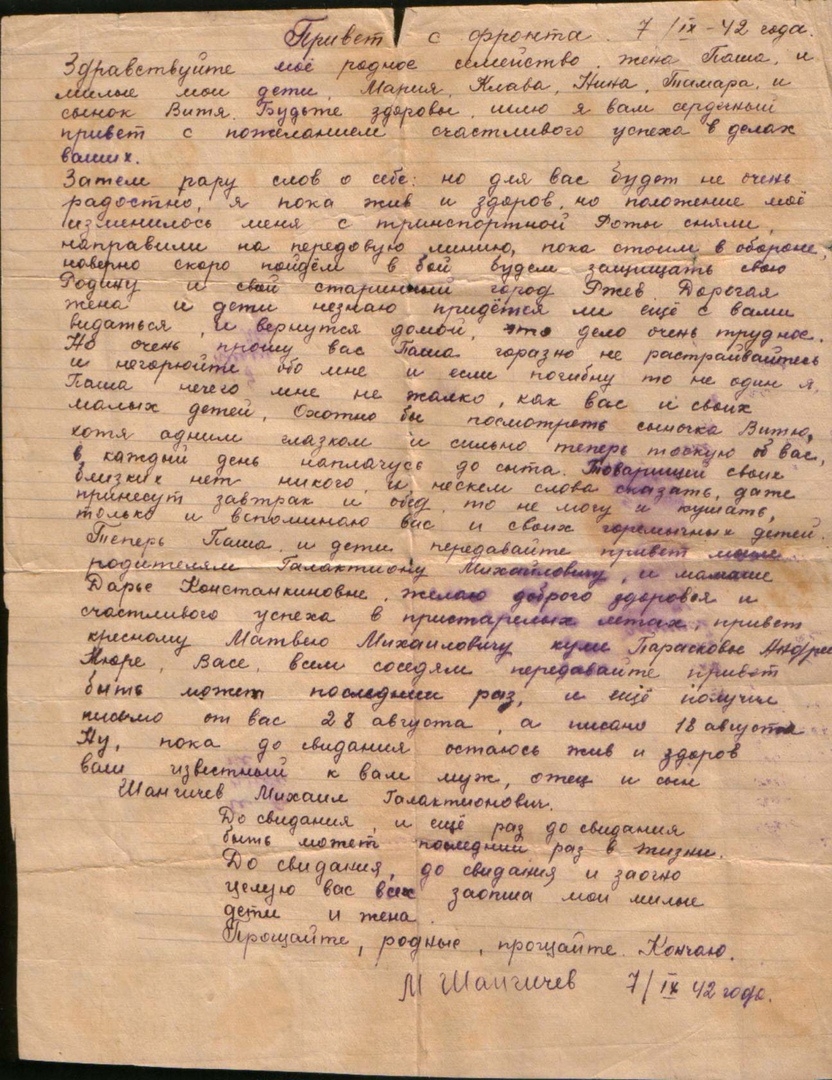 Привет с фронта. 7/IX-42 года.
Здравствуйте моё родное семейство, жена Паша, и
милые мои дети, Мария, Клава, Нина, Тамара, и
сынок Витя. Будьте здоровы, шлю я вам сердечный
привет с пожеланием счастливого успеха в делах
ваших.
Затем пару слов о себе: но для вас будет не очень
радостно, я пока жив и здоров, но положение моё
изменилось меня с транспортной Роты сняли,
направили на передовую линию, пока стоим в обороне,
наверно скоро пойдём в бой будем защищать свою
Родину и свой старинный город Ржев Дорогая
жена и дети незнаю придётся ли ещё с вами
видаться, и вернутся домой, это дело очень трудное.
Но очень прошу вас Паша горазно не растрайвайтесь
и негорюйте обо мне и если погибну то не один я,
Паша нечего мне не жалко, как вас и своих
малых детей, Охотно бы посмотреть сыночка Витю,
хотя одним глазком и сильно теперь тоскую об вас,
в каждый день наплачусь до сыта. Товарищей своих
близких нет никого, и нескем слова сказать, даже
принесут завтрак и обед, то не могу и кушать,
только и вспоминаю вас и своих горемычных детей.
Теперь Паша и дети передавайте привет
родителям Галактиону Михайловичу, и мамаше
Дарье Констанкиновне, желаю доброго здоровья и
счастливого успеха в пристарелых летах, привет
кресному Матвею Михаиловичу куме Парасковье
Нюре, Васе, всем соседям передавайте привет
быть может последний раз, и ещё получил
письмо от вас 28 августа, а писано 18 августа
Ну, пока до свидания остаюсь жив и здоров
ваш известный к вам муж, отец и сын
Шангичев Михаил Галактионович.
До свидания, и ещё раз до свидания
быть может последний раз в жизни.
До свидания, до свидания и заочно
целую вас всех заопша мои милые
дети и жена.
Прощайте, родные, прощайте. Кончаю.
М Шангичев 7/IX 42 года.